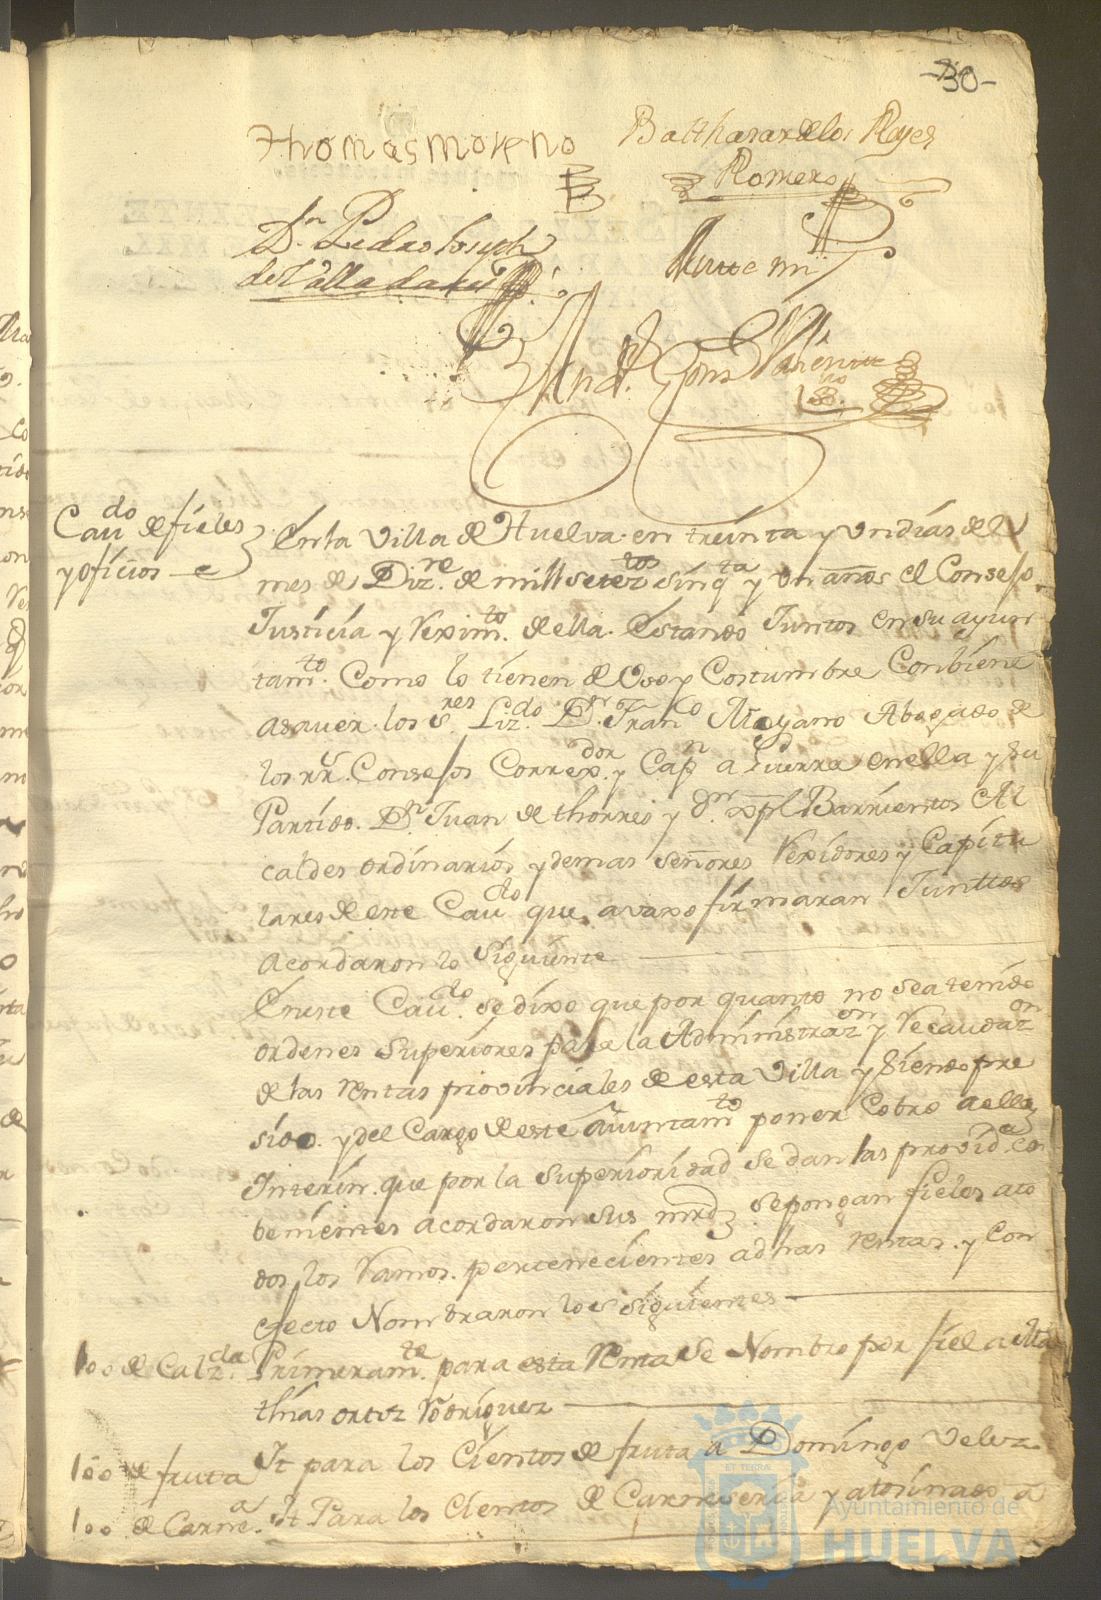 -30-
thomas moreno
Balthasar de los Reyes
Romero
Dn Pedro Joseph
de Valladares
Ante mi
Andr. Gons
Caudo de fieles
y oficios
En la Villa de Huelva en treinta y un dias del
mes de Dizre. de mill seteztos sinqta y un años el Consejo
Justicia y Reximto. de ella. Estando Juntos en su ayun
tamto. Como lo tienen de Uso y Costumbre Conbiene
asaver. los Sres Lizdo Dn. Franco Moyano Abogado de
los Rs. Consejos Correxdor y Capn a Guerra en ella y su
Partido. Dn Juan de thorres y Dn xpl Barrientos Al
caldes ordinarios y demas señores Rexidores y Capitu
lares de este Caudo que avaxo firmaran Junttos
Acordaron lo siguiente
En este Caudo. se dixo que por quanto no sea tenido
ordenes superiores para la Administrazon y Recaudazon
de las Rentas provinciales de esta Villa y siendo pre
siso y del Cargo de este Ayuntamto poner Cobro a ellas
Interin que por la superioridad se dan las providas con
benientes acordaron sus mrds se pongan fieles ato
dos los Ramos pertenecientes adhas Rentas y Con
efecto Nombraron los siguientes
100 de Calzda
Primeramte. para esta Renta se Nombro por fiel a Ma
thias ortiz Rodriguez
100 de fruta
It para los Cientos de fruta a Domingo Velez
100 de Carne
It Para los Cientos de Carneseria y a tosinado a
Ayuntamiento de
HUELVA